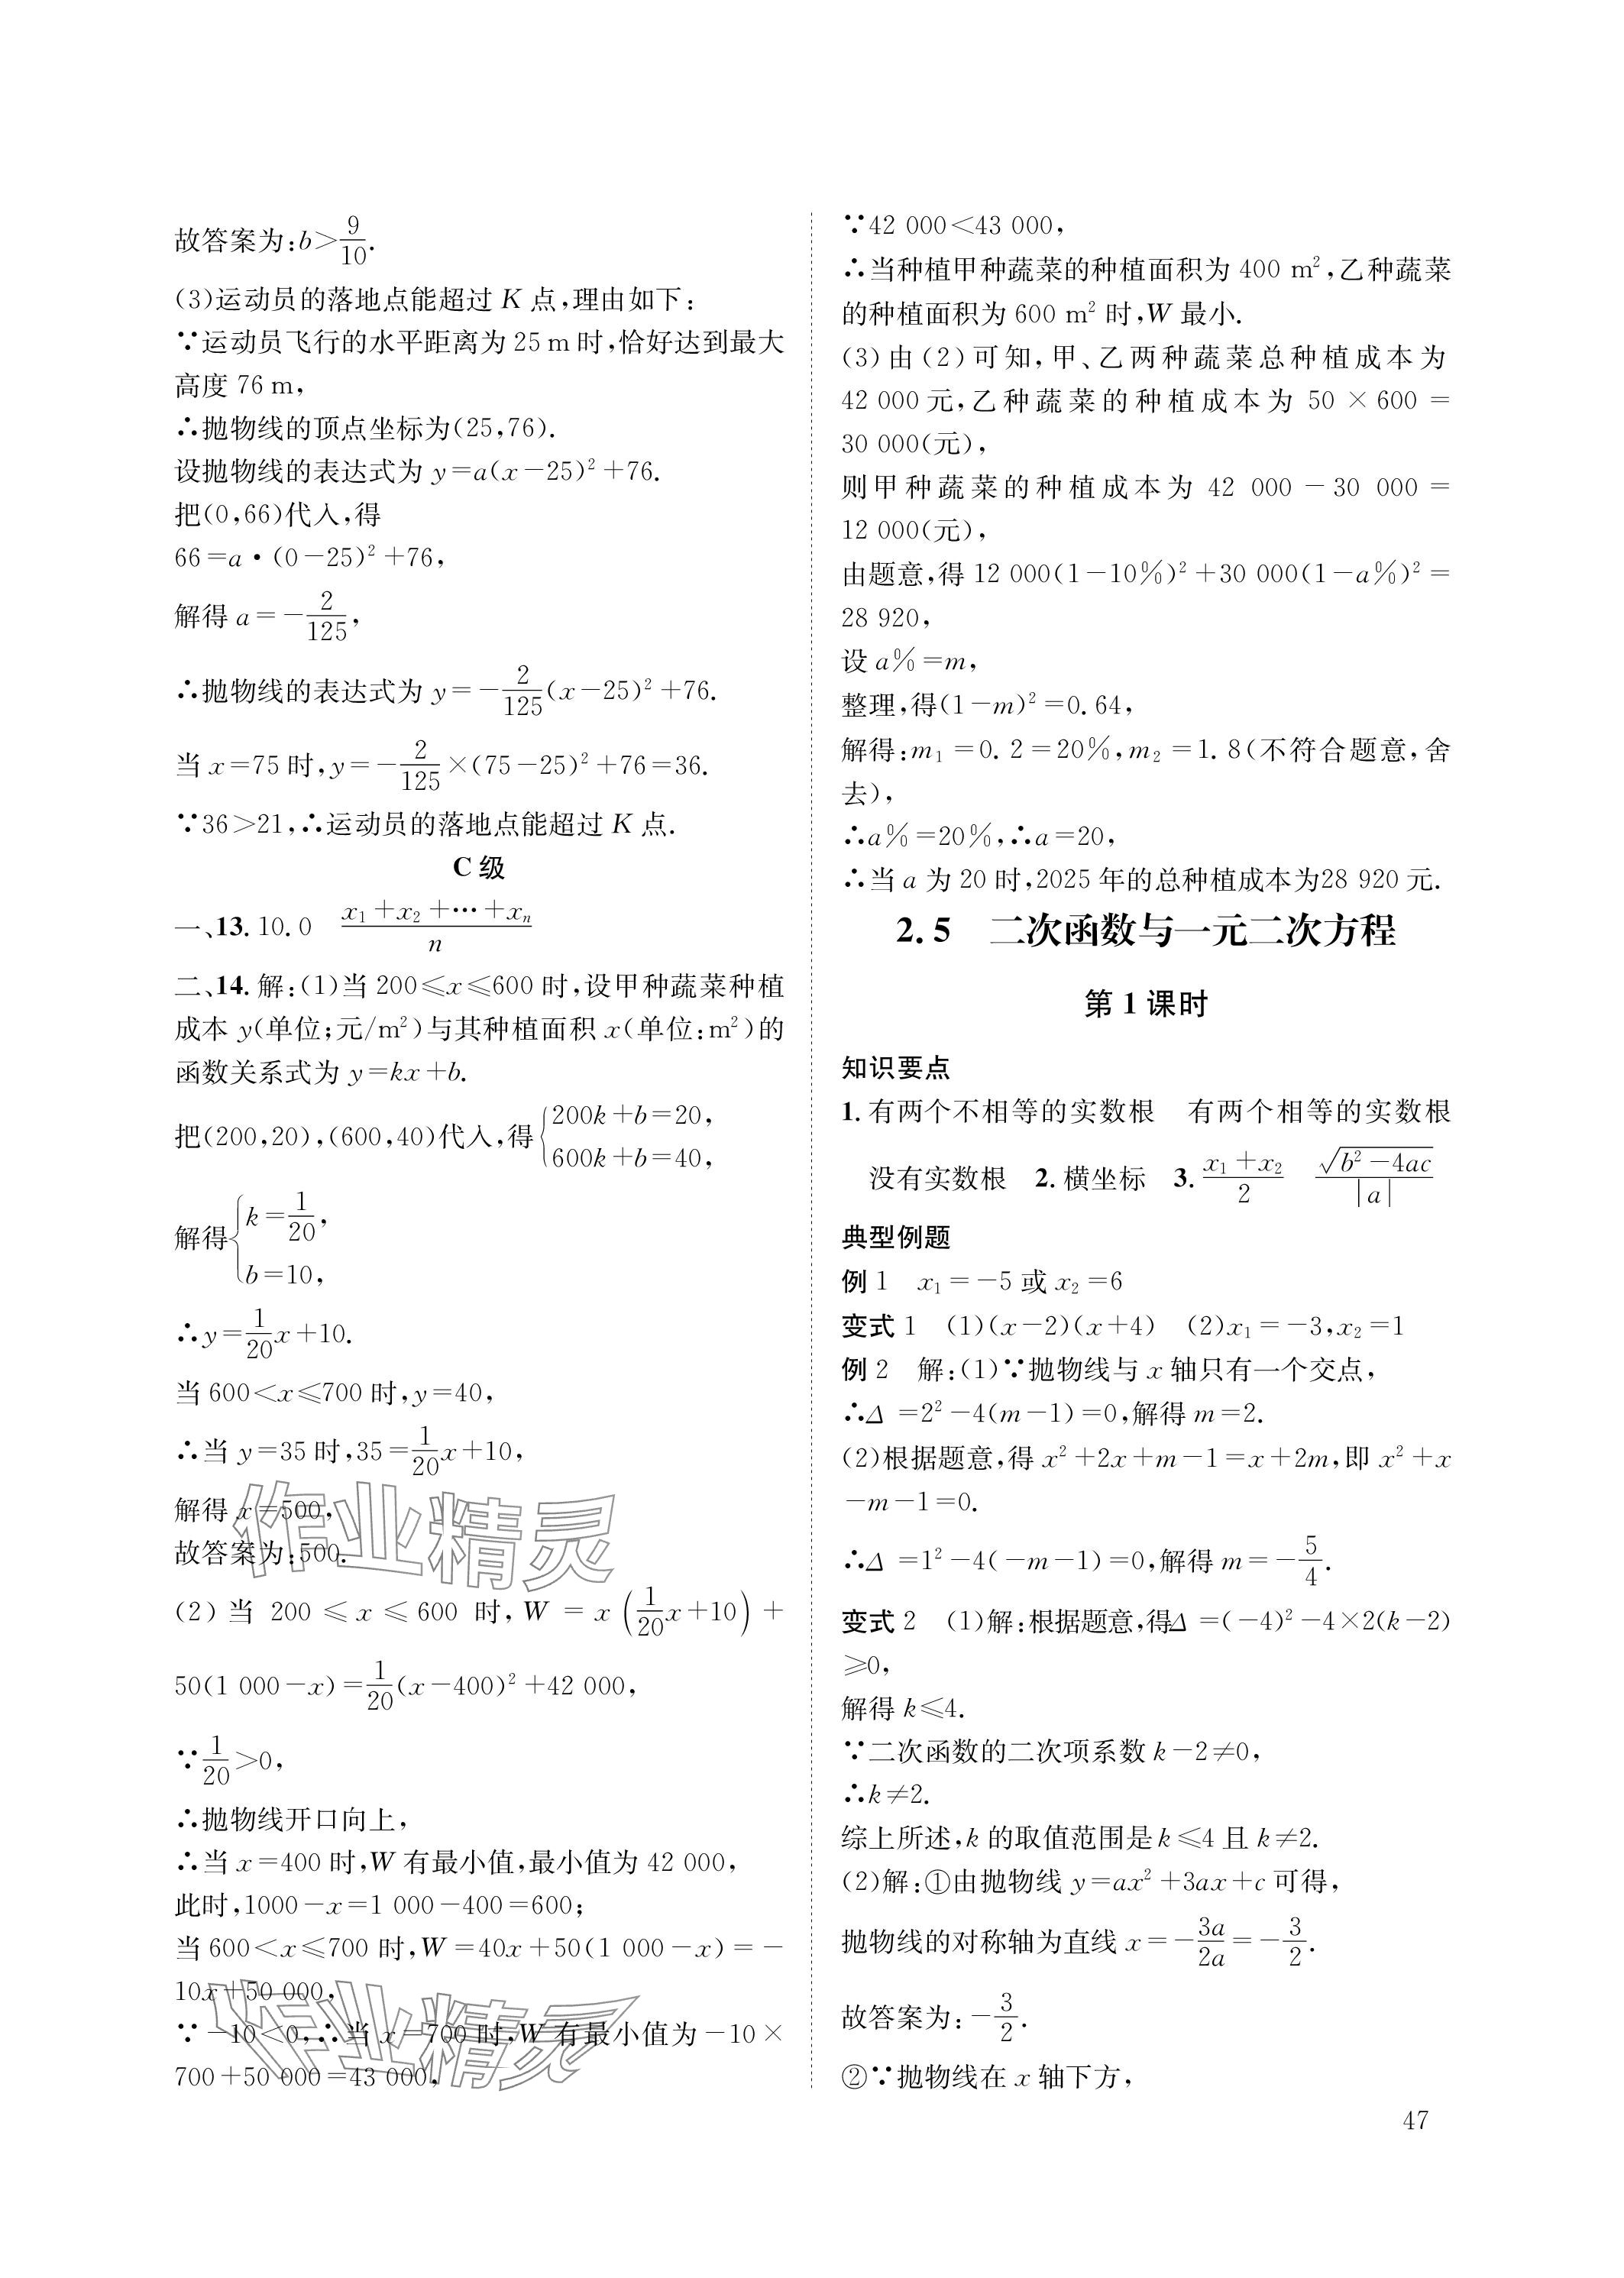 故答案为:b>9/10.
(3)运动员的落地点能超过 K 点,理由如下:
∵运动员飞行的水平距离为 25 m 时,恰好达到最大
高度 76 m,
∴抛物线的顶点坐标为(25,76).
设抛物线的表达式为 y=a(x-25)²+76.
把(0,66)代入,得
66=a·(0-25)²+76,
解得 a=-2/125,
∴抛物线的表达式为 y=-2/125(x-25)²+76.
当 x=75 时,y=-2/125×(75-25)²+76=36.
∵36>21,∴运动员的落地点能超过 K 点.
C 级
一、13. 10.0 (x₁+x₂+…+xₙ)/n
二、14. 解:(1)当 200≤x≤600 时,设甲种蔬菜种植
成本 y(单位;元/m²)与其种植面积 x(单位:m²)的
函数关系式为 y=kx+b.
把(200,20),(600,40)代入,得{200k+b=20,
600k+b=40,
解得{k=1/20,
b=10,
∴y=1/20x+10.
当 600<x≤700 时,y=40,
∴当 y=35 时,35=1/20x+10,
解得 x=500,
故答案为:500.
(2)当 200≤x≤600 时,W=x(1/20x+10)+
50(1 000-x)=1/20(x-400)²+42 000,
∵1/20>0,
∴抛物线开口向上,
∴当 x=400 时,W 有最小值,最小值为 42 000,
此时,1000-x=1 000-400=600;
当 600<x≤700 时,W=40x+50(1 000-x)=-
10x+50 000,
∵-10<0,∴当 x=700 时,W 有最小值为-10×
700+50 000=43 000,
∵42 000<43 000,
∴当种植甲种蔬菜的种植面积为 400 m²,乙种蔬菜
的种植面积为 600 m² 时,W 最小.
(3)由(2)可知,甲、乙两种蔬菜总种植成本为
42 000 元,乙种蔬菜的种植成本为 50×600=
30 000(元),
则甲种蔬菜的种植成本为 42 000-30 000=
12 000(元),
由题意,得 12 000(1-10%)²+30 000(1-a%)²=
28 920,
设 a%=m,
整理,得(1-m)²=0.64,
解得:m₁=0.2=20%,m₂=1.8(不符合题意,舍
去),
∴a%=20%,∴a=20,
∴当 a 为 20 时,2025 年的总种植成本为28 920 元.
2.5 二次函数与一元二次方程
第 1 课时
知识要点
1. 有两个不相等的实数根 有两个相等的实数根
没有实数根 2. 横坐标 3. (x₁+x₂)/2 √(b²-4ac)/|a|
典型例题
例 1 x₁=-5 或 x₂=6
变式 1 (1)(x-2)(x+4) (2)x₁=-3,x₂=1
例 2 解:(1)∵抛物线与 x 轴只有一个交点,
∴Δ=2²-4(m-1)=0,解得 m=2.
(2)根据题意,得 x²+2x+m-1=x+2m,即 x²+x
-m-1=0.
∴Δ=1²-4(-m-1)=0,解得 m=-5/4.
变式 2 (1)解:根据题意,得Δ=(-4)²-4×2(k-2)
≥0,
解得 k≤4.
∵二次函数的二次项系数 k-2≠0,
∴k≠2.
综上所述,k 的取值范围是 k≤4 且 k≠2.
(2)解:①由抛物线 y=ax²+3ax+c 可得,
抛物线的对称轴为直线 x=-3a/2a=-3/2.
故答案为:-3/2.
②∵抛物线在 x 轴下方,
47
作业精灵
作业精灵